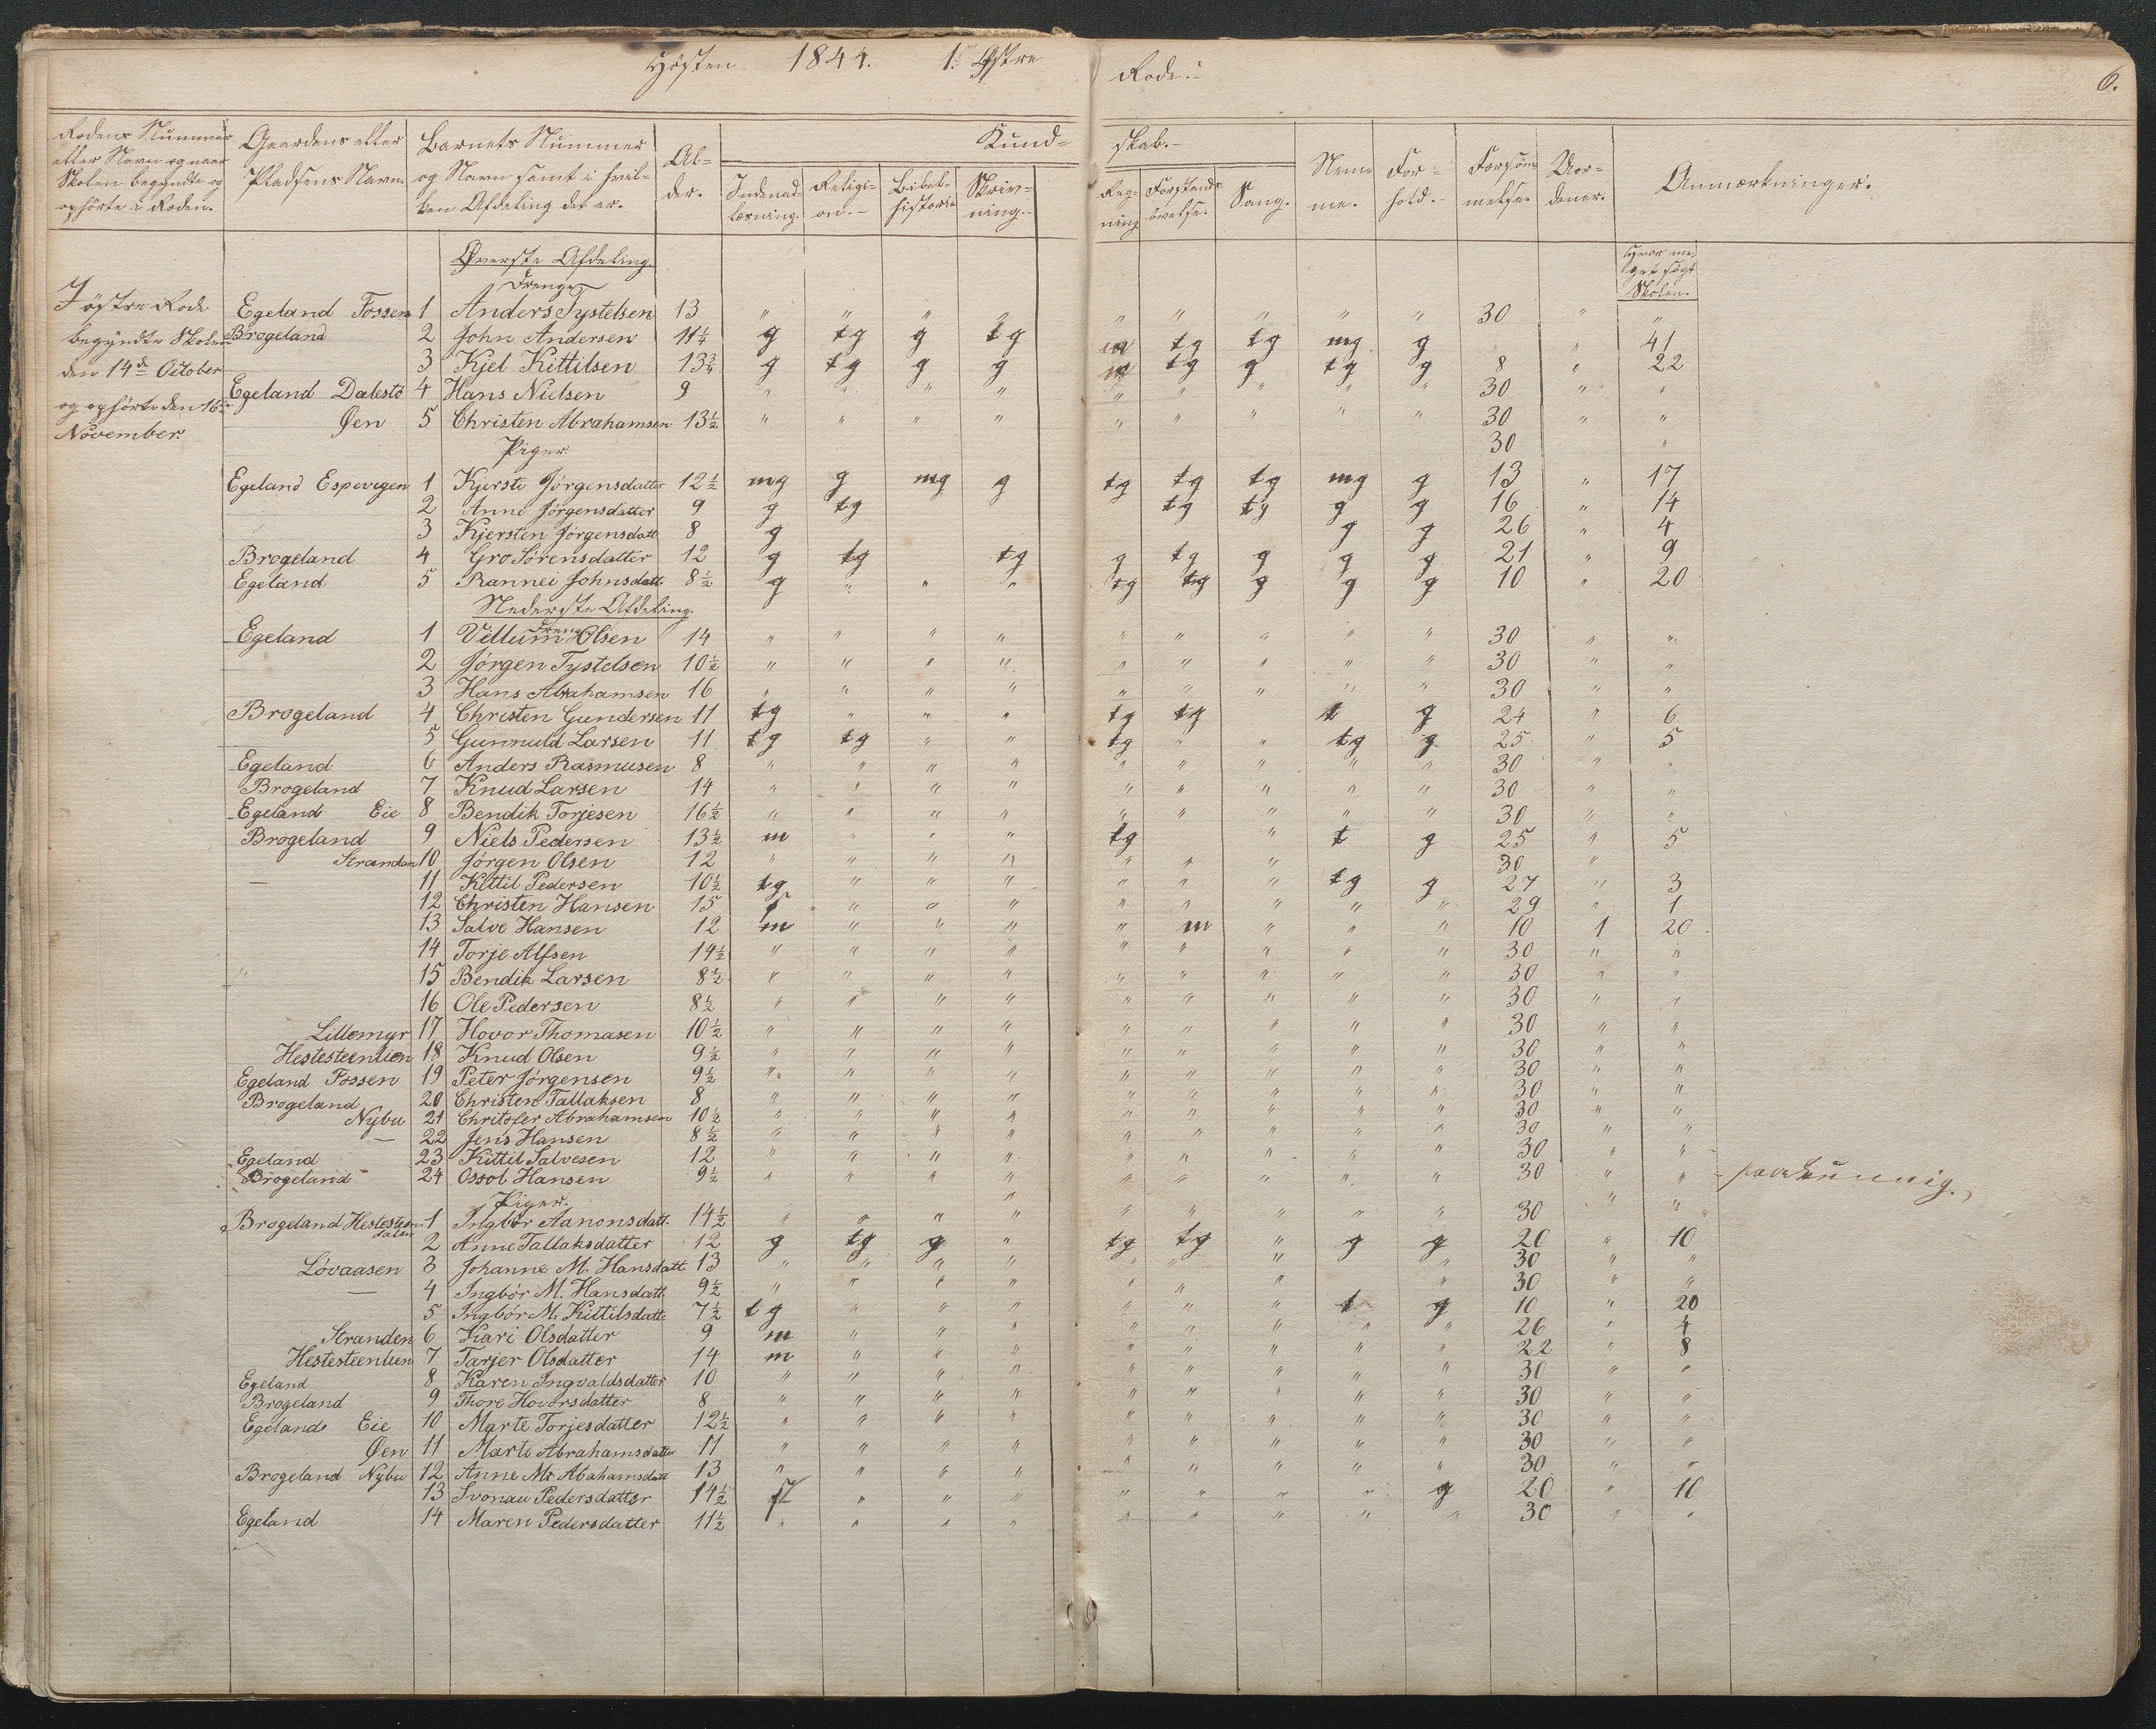 Høsten 1844. 1. Østre Rode.
6.
Rodens Nummer eller Navn og naar Skolen begyndte og ophørte i Roden.
Gaardens eller Pladsens Navn.
Barnets Nummer og Navn samt i hvilken Afdeling det er.
Alder.
Kundskab.
Indenadlæsning. Religion. Bibelhistorie Skrivning. Regning Forstandsøvelse. Sang.
Nemme. Forhold. Forsømmelse. Uordener. Anmærkninger.
Hvor meget søgt Skolen.
I østre Rode
begyndte Skolen
den 14de October
og ophørte den 16de
November.
Øverste Afdeling.
Drenge
Egeland Fossen 1 Anders Tystelsen 13 " " " " " " " " " 30 " "
Brogeland 2 John Andersen 11 1/4 g tg g tg m tg tg mg g " 41
3 Kjel Kittilsen 13 3/4 g tg g g m tg g tg g 8 " 22
Egeland Dalestø 4 Hans Nielsen 9 " " " " " " " " " 30 " "
Øen 5 Christen Abrahamsen 13 1/2 " " " " " " " " " 30 " "
Piger. 30 "
Egeland Espevegen 1 Kjersti Jørgensdatter 12 1/2 mg g mg g tg tg tg mg g 13 " 17
2 Anne Jørgensdatter 9 g tg tg tg g g 16 " 14
3 Kjersten Jørgensdatt 8 g g g 26 " 4
Brogeland 4 Gro Sørensdatter 12 g tg tg g tg g g g 21 " 9
Egeland 5 Rannei Johnsdatt. 8 1/2 g " " " tg tg g g g 10 " 20
Nederste Afdeling.
Drenge
Egeland 1 Villum Olsen 14 " " " " " " " " " 30 " "
2 Jørgen Tystelsen 10 1/2 " " " " " " " " " 30 " "
3 Hans Abrahamsen 16 " " " " " " " " " 30 " "
Brogeland 4 Christen Gundersen 11 tg " " " tg tg t g 24 " 6
5 Gunnuld Larsen 11 tg tg " " tg " " tg g 25 " 5
Egeland 6 Anders Rasmusen 8 " " " " " " " " " 30 " "
Brogeland 7 Knud Larsen 14 " " " " " " " " " 30 " "
Egeland Eie 8 Bendik Torjesen 16 1/2 " " " " " " " " " 30 " "
Brogeland 9 Niels Pedersen 13 1/2 m " " " tg " t g 25 " 5
Stranden 10 Jørgen Olsen 12 " " " " " " " 30 "
— 11 Kittil Pedersen 10 1/2 tg " " " " " " tg g 27 " 3
12 Christen Hansen 15 t " " " " " " " " 29 " 1
13 Salve Hansen 12 m " " " " m " " " 10 1 20
14 Torje Alfsen 14 1/2 " " " " " " " " " 30 " "
" 15 Bendik Larsen 8 1/2 " " " " " " " " " 30 " "
16 Ole Pedersen 8 1/2 " " " " " " " " " 30 " "
Lillemyr 17 Hovor Thomasen 10 1/2 " " " " " " " " " 30 " "
Hestesteenlien 18 Knud Olsen 9 1/2 " " " " " " " " " 30 " "
Egeland Fossen 19 Peter Jørgensen 9 1/2 " " " " " " " " " 30 " "
Brogeland 20 Christen Tallaksen 8 " " " " " " " " " 30 " "
Nybu 21 Christofer Abrahamsen 10 1/2 " " " " " " " " " 30 " "
— 22 Jens Hansen 8 1/2 " " " " " " " " " 30 " "
Egeland 23 Kittil Salvesen 12 " " " " " " " " " 30 " "
Brogeland 24 Ossol Hansen 9 1/2 " " " " " " " " " 30 " "
Piger.
Brogeland Hestesteendalen 1 Ingbør Aanonsdatt. 14 1/2 " " " " " " " " " 30 " "
2 Anne Tallaksdatter 12 g tg g " tg tg " g g 20 " 10
Løvaasen 3 Johanne M. Hansdatt. 13 " " " " " " " " 30 " "
— 4 Ingbør M. Hansdatt. 9 1/2 " " " " " " " " 30 " "
5 Ingbør M. Kittilsdatt. 7 1/2 tg " " " " " " t g 10 " 20
Stranden 6 Kari Olsdatter 9 m " " " " " " " " 26 " 4
Hestesteenlien 7 Tarjer Olsdatter 14 m " " " " " " " " 22 " 8
Egeland 8 Karen Ingvaldsdatter 10 " " " " " " " " " 30 " "
Brogeland 9 Thore Hovorsdatter 8 " " " " " " " " " 30 " "
Egeland Eie 10 Marte Torjesdatter 12 1/2 " " " " " " " " " 30 " "
Øen 11 Marte Abrahamsdatter 11 " " " " " " " " " 30 " "
Brogeland Nybu 12 Anne M. Abahamsdatt 13 " " " " " " " " " 30 " "
13 Svonau Pedersdatter 14 1/2 " " " " " " " g 20 " 10
Egeland 14 Maren Pedersdatter 11 1/2 " " " " " " " " " 30 " "